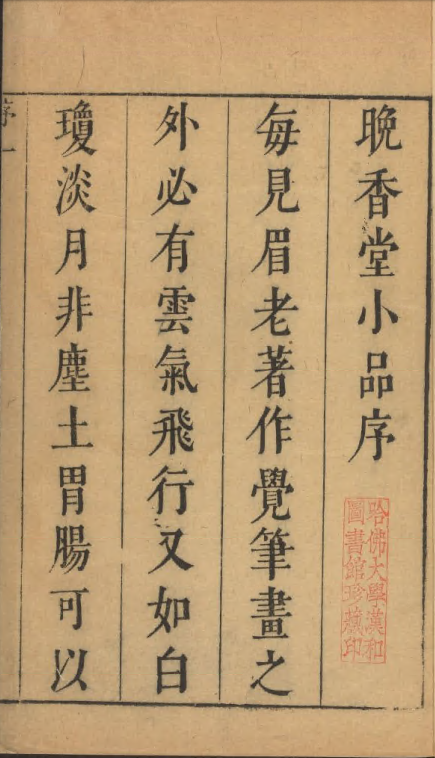 晚香堂小品序
每見眉老著作覺筆畫之
外必有雲氣飛行又如白
瓊淡月非塵土胃腸可以
序一
哈佛大學漢和
圖書館珍藏印